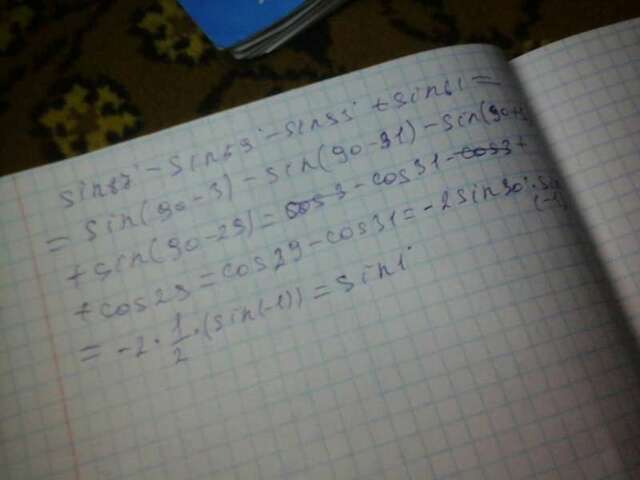 sin87° - sin59° - sin93° + sin61 =
= sin(90-3) - sin(90-31) - sin(90+3
+ sin(90-29) = cos3 - cos31 - cos3 +
+ cos29 = cos29 - cos31 = -2sin30° · sin
(-1)
= -2 · 1/2 · (sin(-1)) = sin1°